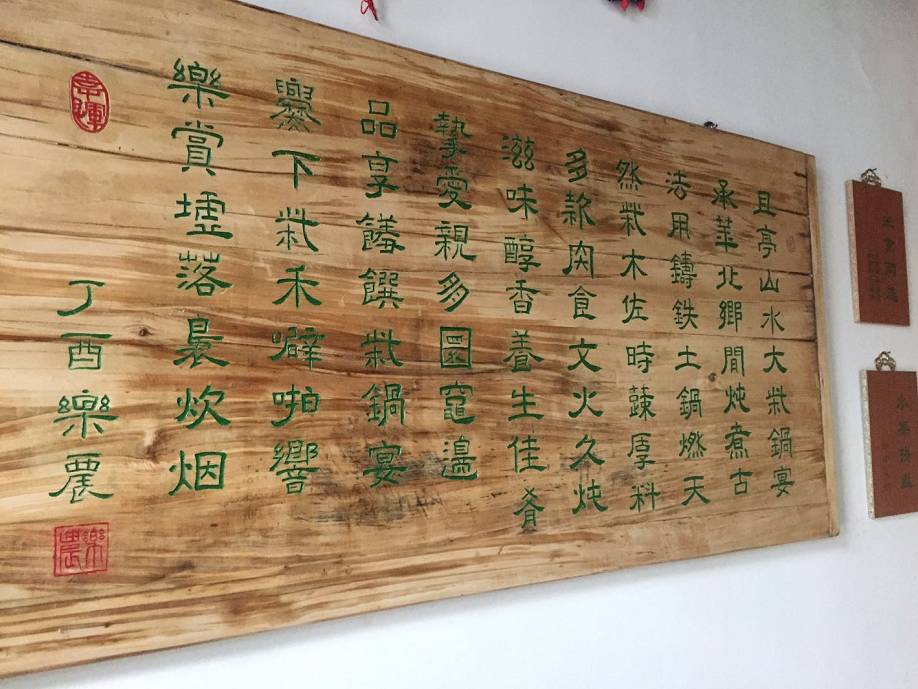 且亭山水大柴鍋宴
承華北鄉間炖煮古
法用鑄鉄土鍋燃天
然柴木佐時蔬厚料
多款肉食文火久炖
滋味醇香養生佳肴
摯愛親多圍竈邉
品享饍饌柴鍋宴
爨下柴禾噼啪響
樂賞墟落晨炊烟
丁酉樂農
樂農